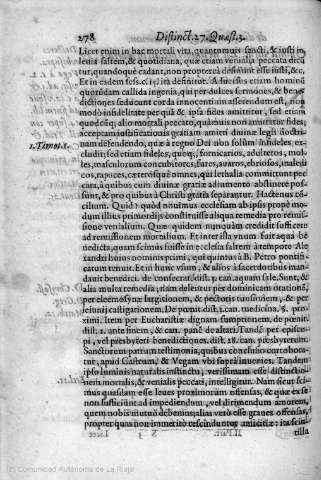 278
Distinct. 27. Quæst. 3.
Licet enim in hac mortali vita, quantumuis sancti, & iusti in
leuia saltem, & quotidiana, quæ etiam venialia peccata dicũ
tur, quandoque cadant, non propterea desinunt esse iusti, &c.
Et in eadem sess. c. 15. ita definitur. Aduersus etiam hominũ
quorũdam callida ingenia, qui per dulces sermones, & bene
dictiones seducunt corda innocentium asserendum est, non
modò infidelitate per quã & ipsa fides amittitur, sed etiam
quocũque alio mortali peccato, quãuis non amittatur fides,
acceptam iustificationis gratiam amitti diuinæ legis doctri
nam defendendo, quæ à regno Dei nõ solùm infideles ex-
cludit; sed etiam fideles, quoq; fornicarios, adulteros, mol-
1. Timot. 1.
les, masculorum concubitores, fures, auaros, ebriosos, maledi
cos, rapaces, cæterosque omnes, qui lethalia committunt pec
cata, à quibus cum diuinæ gratiæ adiumento abstinere pos-
sunt, & pro quibus à Christi gratia separantur. Hactenus cõ
cilium. Quid? quòd nouimus ecclesiam ab ipsis propè mo-
dum illius primordijs constituisse aliqua remedia pro remis-
sione venialium. Quæ quidem nunquàm credidit sufficere
ad remissionem mortalium. Et inter ista vnum fuit aqua be
nedicta, quam scimus fuisse in ecclesia saltem à tempore Ale
xandri huius nominis primi, qui quintus à B. Petro ponti-
ficatum tenuit. Et in hunc vsum, & alios à sacerdotibus man
dauit benedici. de consecrat. dist. 3. can. aquam sale. Sunt, &
alia multa remedia, nam delentur per dominicam orationẽ,
per eleemosynæ largitionem, & pectoris tunsionem, & per
carnis castigationem. De pœnit. dist. 1. can. medicina. §. pro-
xima. Item per Eucharistiæ dignam sumptionem, de pœnit.
dist. 2. ante finem, & can. panẽ de altari. Tandẽ per episco-
pi, vel presbyteri benedictiones. dist. 28. can. presbyterum.
Sanctorum patrum testimonia, quibus conclusio corrobora-
tur, apud Castrum, & Vegam vbi suprà inuenies. Tandem
ipso luminis naturalis instinctu, verissimam esse distinctio-
nem mortalis, & venialis peccati, intelligitur. Nam sicut sci-
mus quasdam esse leues proximorum offensas, & quæ ex se
non sufficiunt ad impediendum, vel dirimendum amorem,
quem nobis mutuò debemus, alias verò esse graues offensas,
propter quas non immeritò rescinduntur amicitiæ; ita sci-
tilla
(c) Comunidad Autónoma de La Rioja